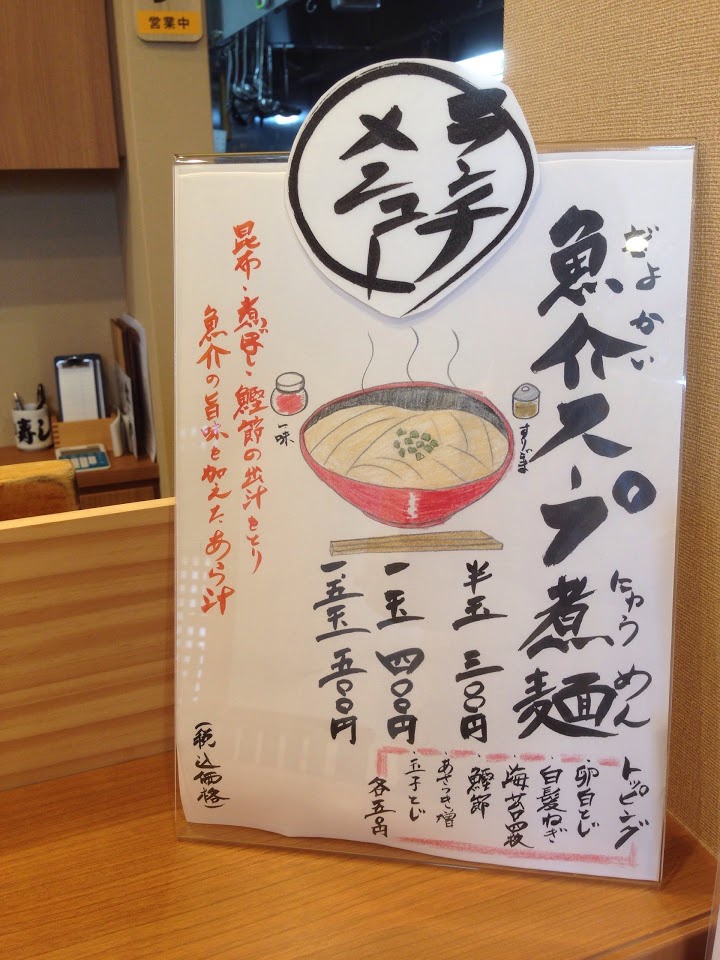 営業中
ランチ
メニュー
ぎょ かい
魚介スープ煮麺
にゅう めん
半玉 三〇〇円
一玉 四〇〇円
一、五玉 五〇〇円
すりごま
一味
昆布・煮干し・鰹節の出汁をとり
魚介の旨味を加えたあら汁
トッピング
・卵白とじ
・白髪ねぎ
・海苔四枚
・鰹節
・あさつき増
・玉子とじ
各五〇円
(税込価格)
寿し